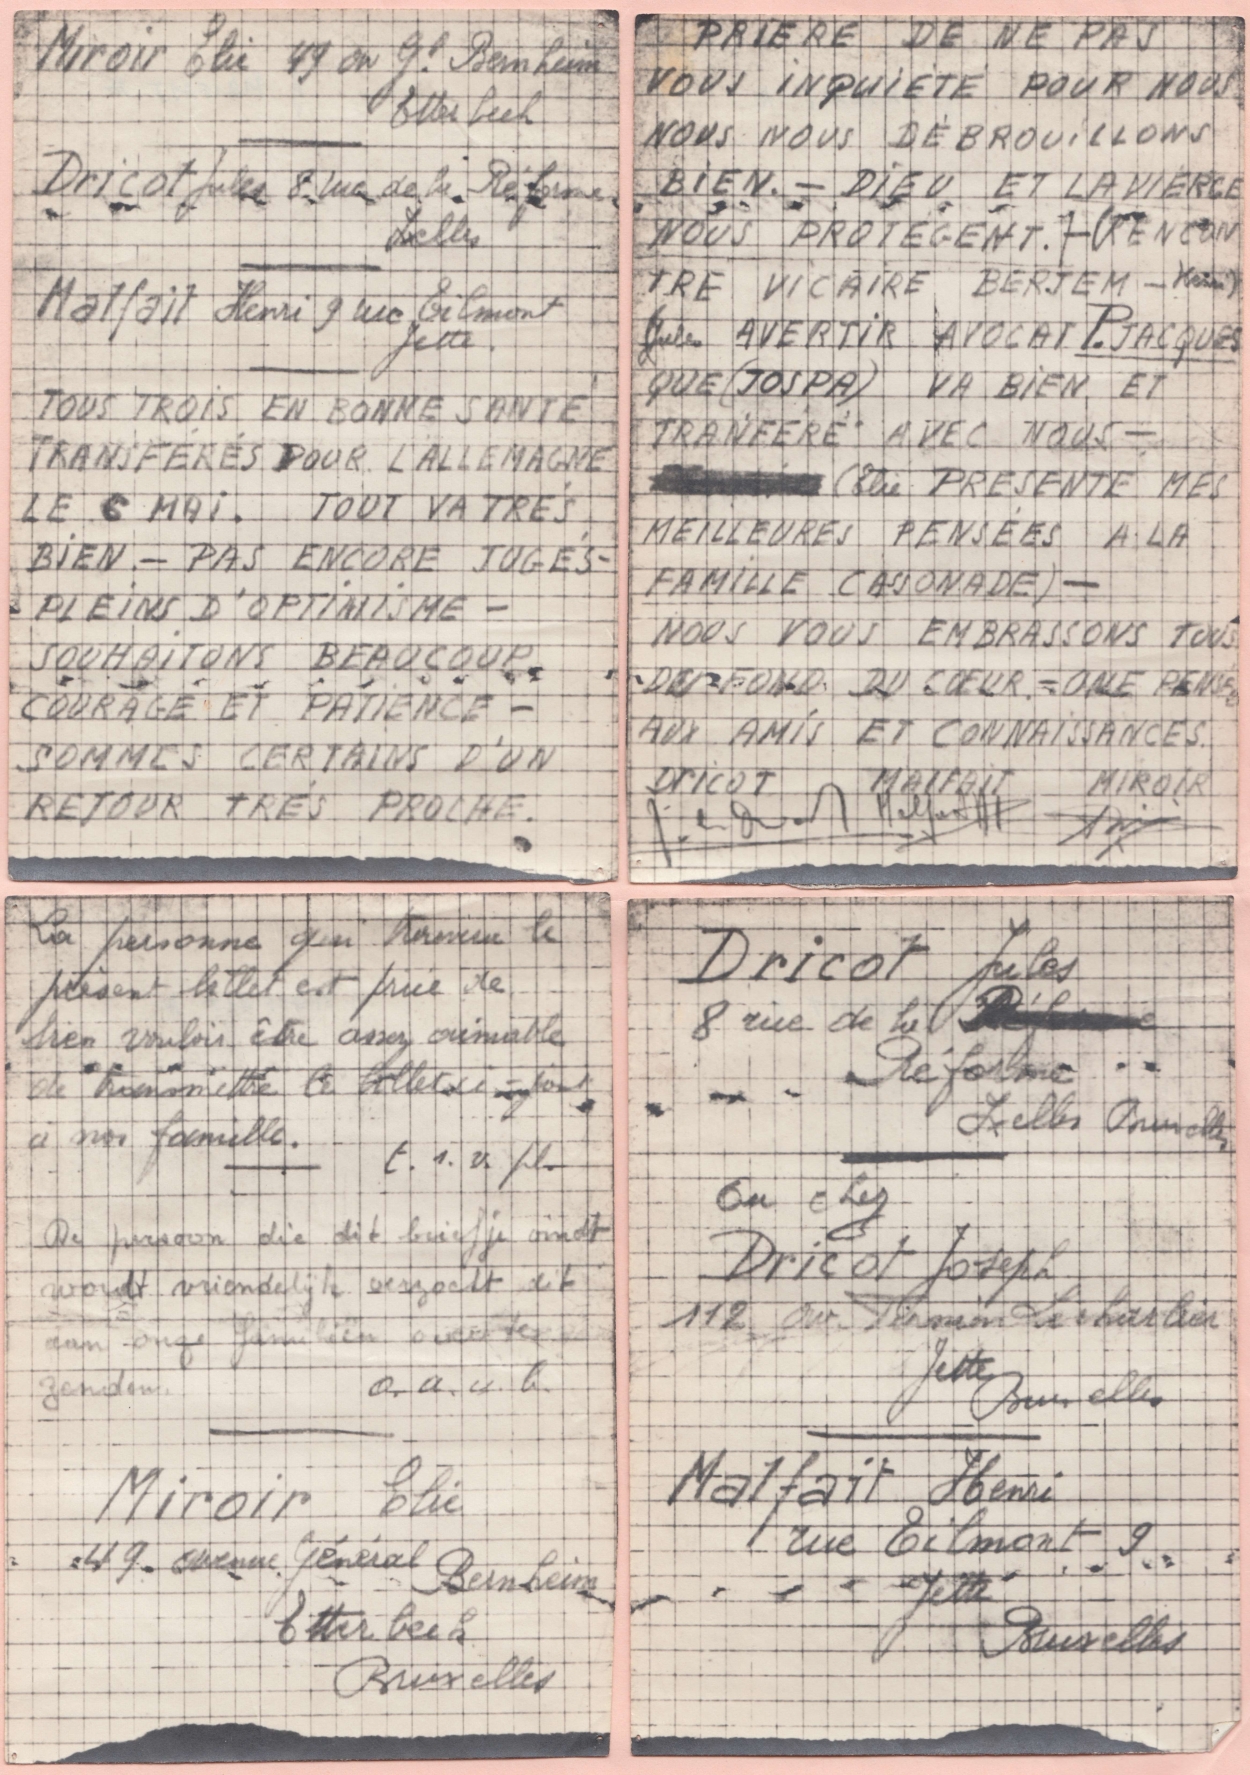 Miroir Elie 49 av Gl Bernheim
Etterbeek
Dricot Jules 8 rue de la Réforme
Ixelles
Malfait Henri 9 rue Eilmont
Jette.
TOUS TROIS EN BONNE SANTÉ
TRANSFÉRÉS POUR L'ALLEMAGNE
LE 6 MAI. TOUT VA TRÈS
BIEN.— PAS ENCORE JUGÉS-
PLEINS D'OPTIMISME —
SOUHAITONS BEAUCOUP
COURAGE ET PATIENCE —
SOMMES CERTAINS D'UN
RETOUR TRÉS PROCHE.
PRIERE DE NE PAS
VOUS INQUIÉTÉ POUR NOUS
NOUS NOUS DÉBROUILLONS
BIEN.— DIEU ET LA VIERGE
NOUS PROTÉGENT.—(RENCON
TRE VICAIRE BERTEM —
Jules AVERTIR AVOCAT P. JACQUES
QUE (JOSPA) VA BIEN ET
TRANFÉRÉ AVEC NOUS —
(Elie PRÉSENTE MES
MEILLEURES PENSÉES A LA
FAMILLE CASSONADE) —
NOUS VOUS EMBRASSONS TOUS
DU FOND DU CŒUR.= UNE PENSÉE
AUX AMIS ET CONNAISSANCES.
DRICOT MALFAIT MIROIR
Malfait
La personne qui trouvera le
présent billet est priée de
bien vouloir être assez aimable
de transmettre le billet ci-joint
à nos famille.
t. s. v. pl.
De persoon die dit briefje vindt
wordt vriendelijk verzocht dit
aan onze familien over te
zenden.
a. u. b.
Miroir Elie
49. avenue Général Bernheim
Etterbeek
Bruxelles
Dricot Jules
8 rue de la Réforme
Réforme
Ixelles Bruxelles
ou chez
Dricot Joseph
112 av. Firmin Lecharlier
Jette
Bruxelles
Malfait Henri
rue Eilmont 9
Jette
Bruxelles